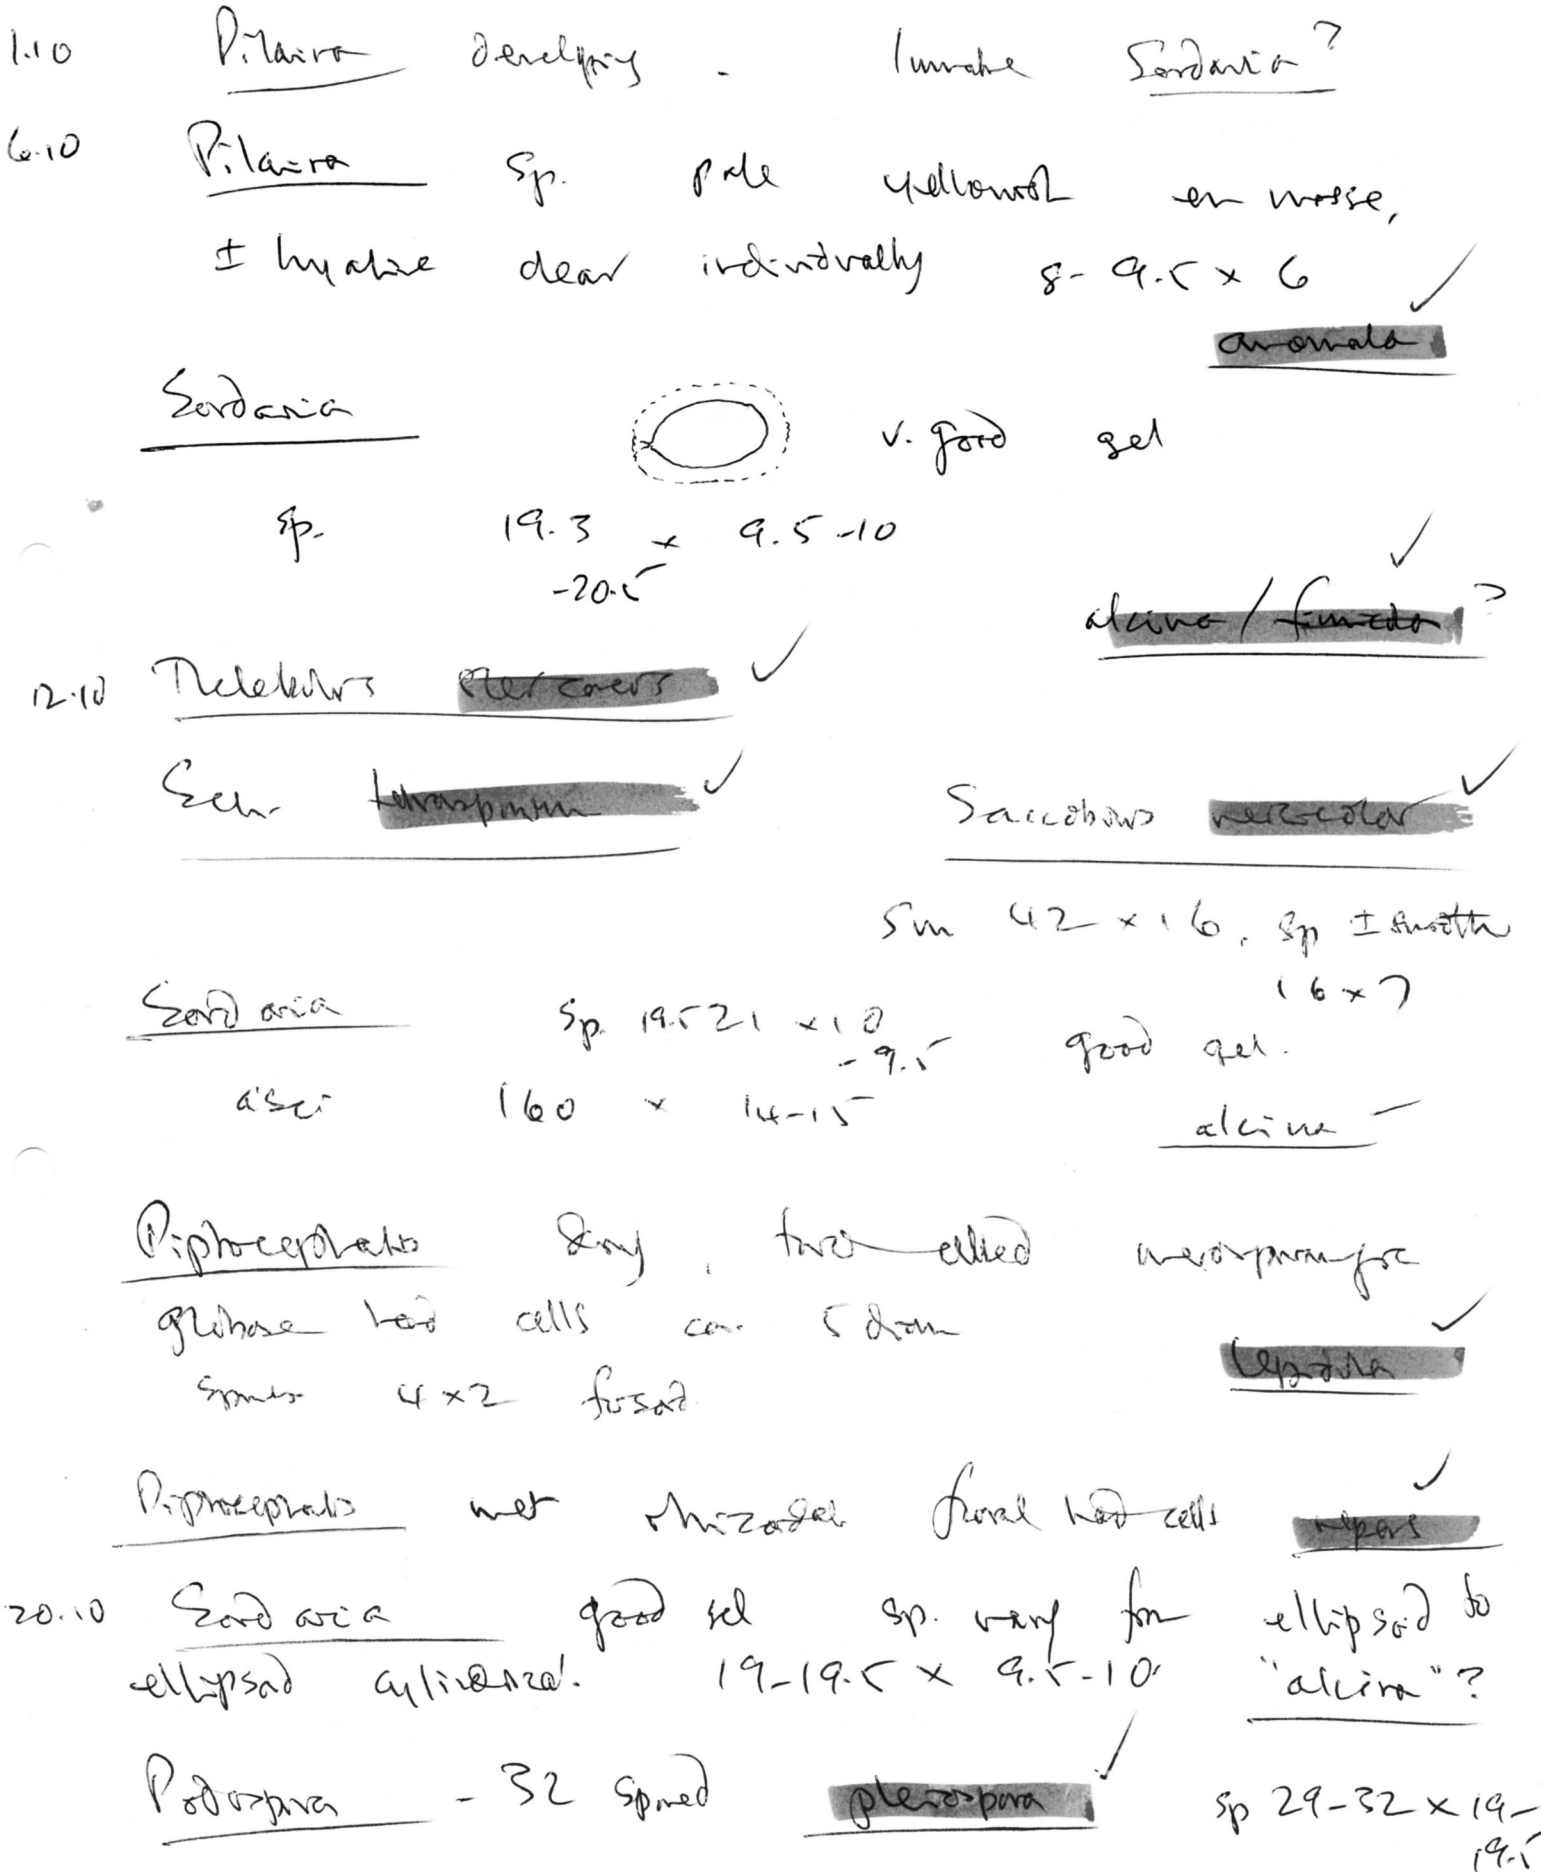 1.10 Pilaira developing - Immature Sordaria?
6.10 Pilaira sp. pale yellowish en masse,
± hyaline clear individually 8-9.5 × 6
anomala
Sordaria v. good gel
sp. 19.3 × 9.5-10
-20.5
alcina / fimicola ?
12.10 Thelebolus stercoreus
Sch. tetrasporum Saccobolus versicolor
42 × 16, sp ± smooth
16 × 7
Sordaria sp. 19.5 21 × 10
-9.5 good gel.
asci 160 × 14-15
alcina
Piptocephalis dry, two-celled merosporangia
globose head cells ca. 5 diam
spores 4 × 2 fusoid
lepidula
Piptocephalis wet rhizoidal head cells repens
20.10 Sordaria good gel sp. vary from ellipsoid to
ellipsoid cylindrical. 19-19.5 × 9.5-10. "alcina"?
Podospora - 32 spored pleiospora sp 29-32 × 19-
19.5